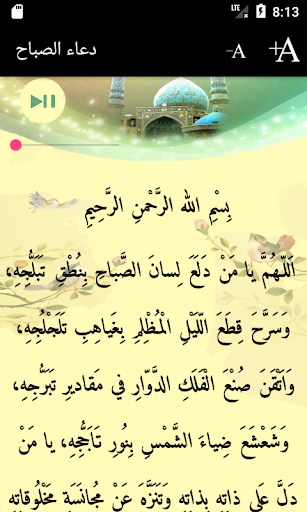 LTE 8:13
دعاء الصباح
-A
+A
بِسْمِ اللهِ الرَّحْمنِ الرَّحِيمِ
اَللّـهُمَّ يا مَنْ دَلَعَ لِسانَ الصَّباحِ بِنُطْقِ تَبَلُّجِهِ،
وَسَرَّحَ قِطَعَ اللَّيْلِ الْمُظْلِمِ بِغَياهِبِ تَلَجْلُجِهِ،
وَاَتْقَنَ صُنْعَ الْفَلَكِ الدَّوّارِ في مَقاديرِ تَبَرُّجِهِ،
وَشَعْشَعَ ضِياءَ الشَّمْسِ بِنُورِ تَاَجُّجِهِ، يا مَنْ
دَلَّ عَلى ذاتِهِ بِذاتِهِ وَتَنَزَّهَ عَنْ مُجانَسَةِ مَخْلُوقاتِهِ